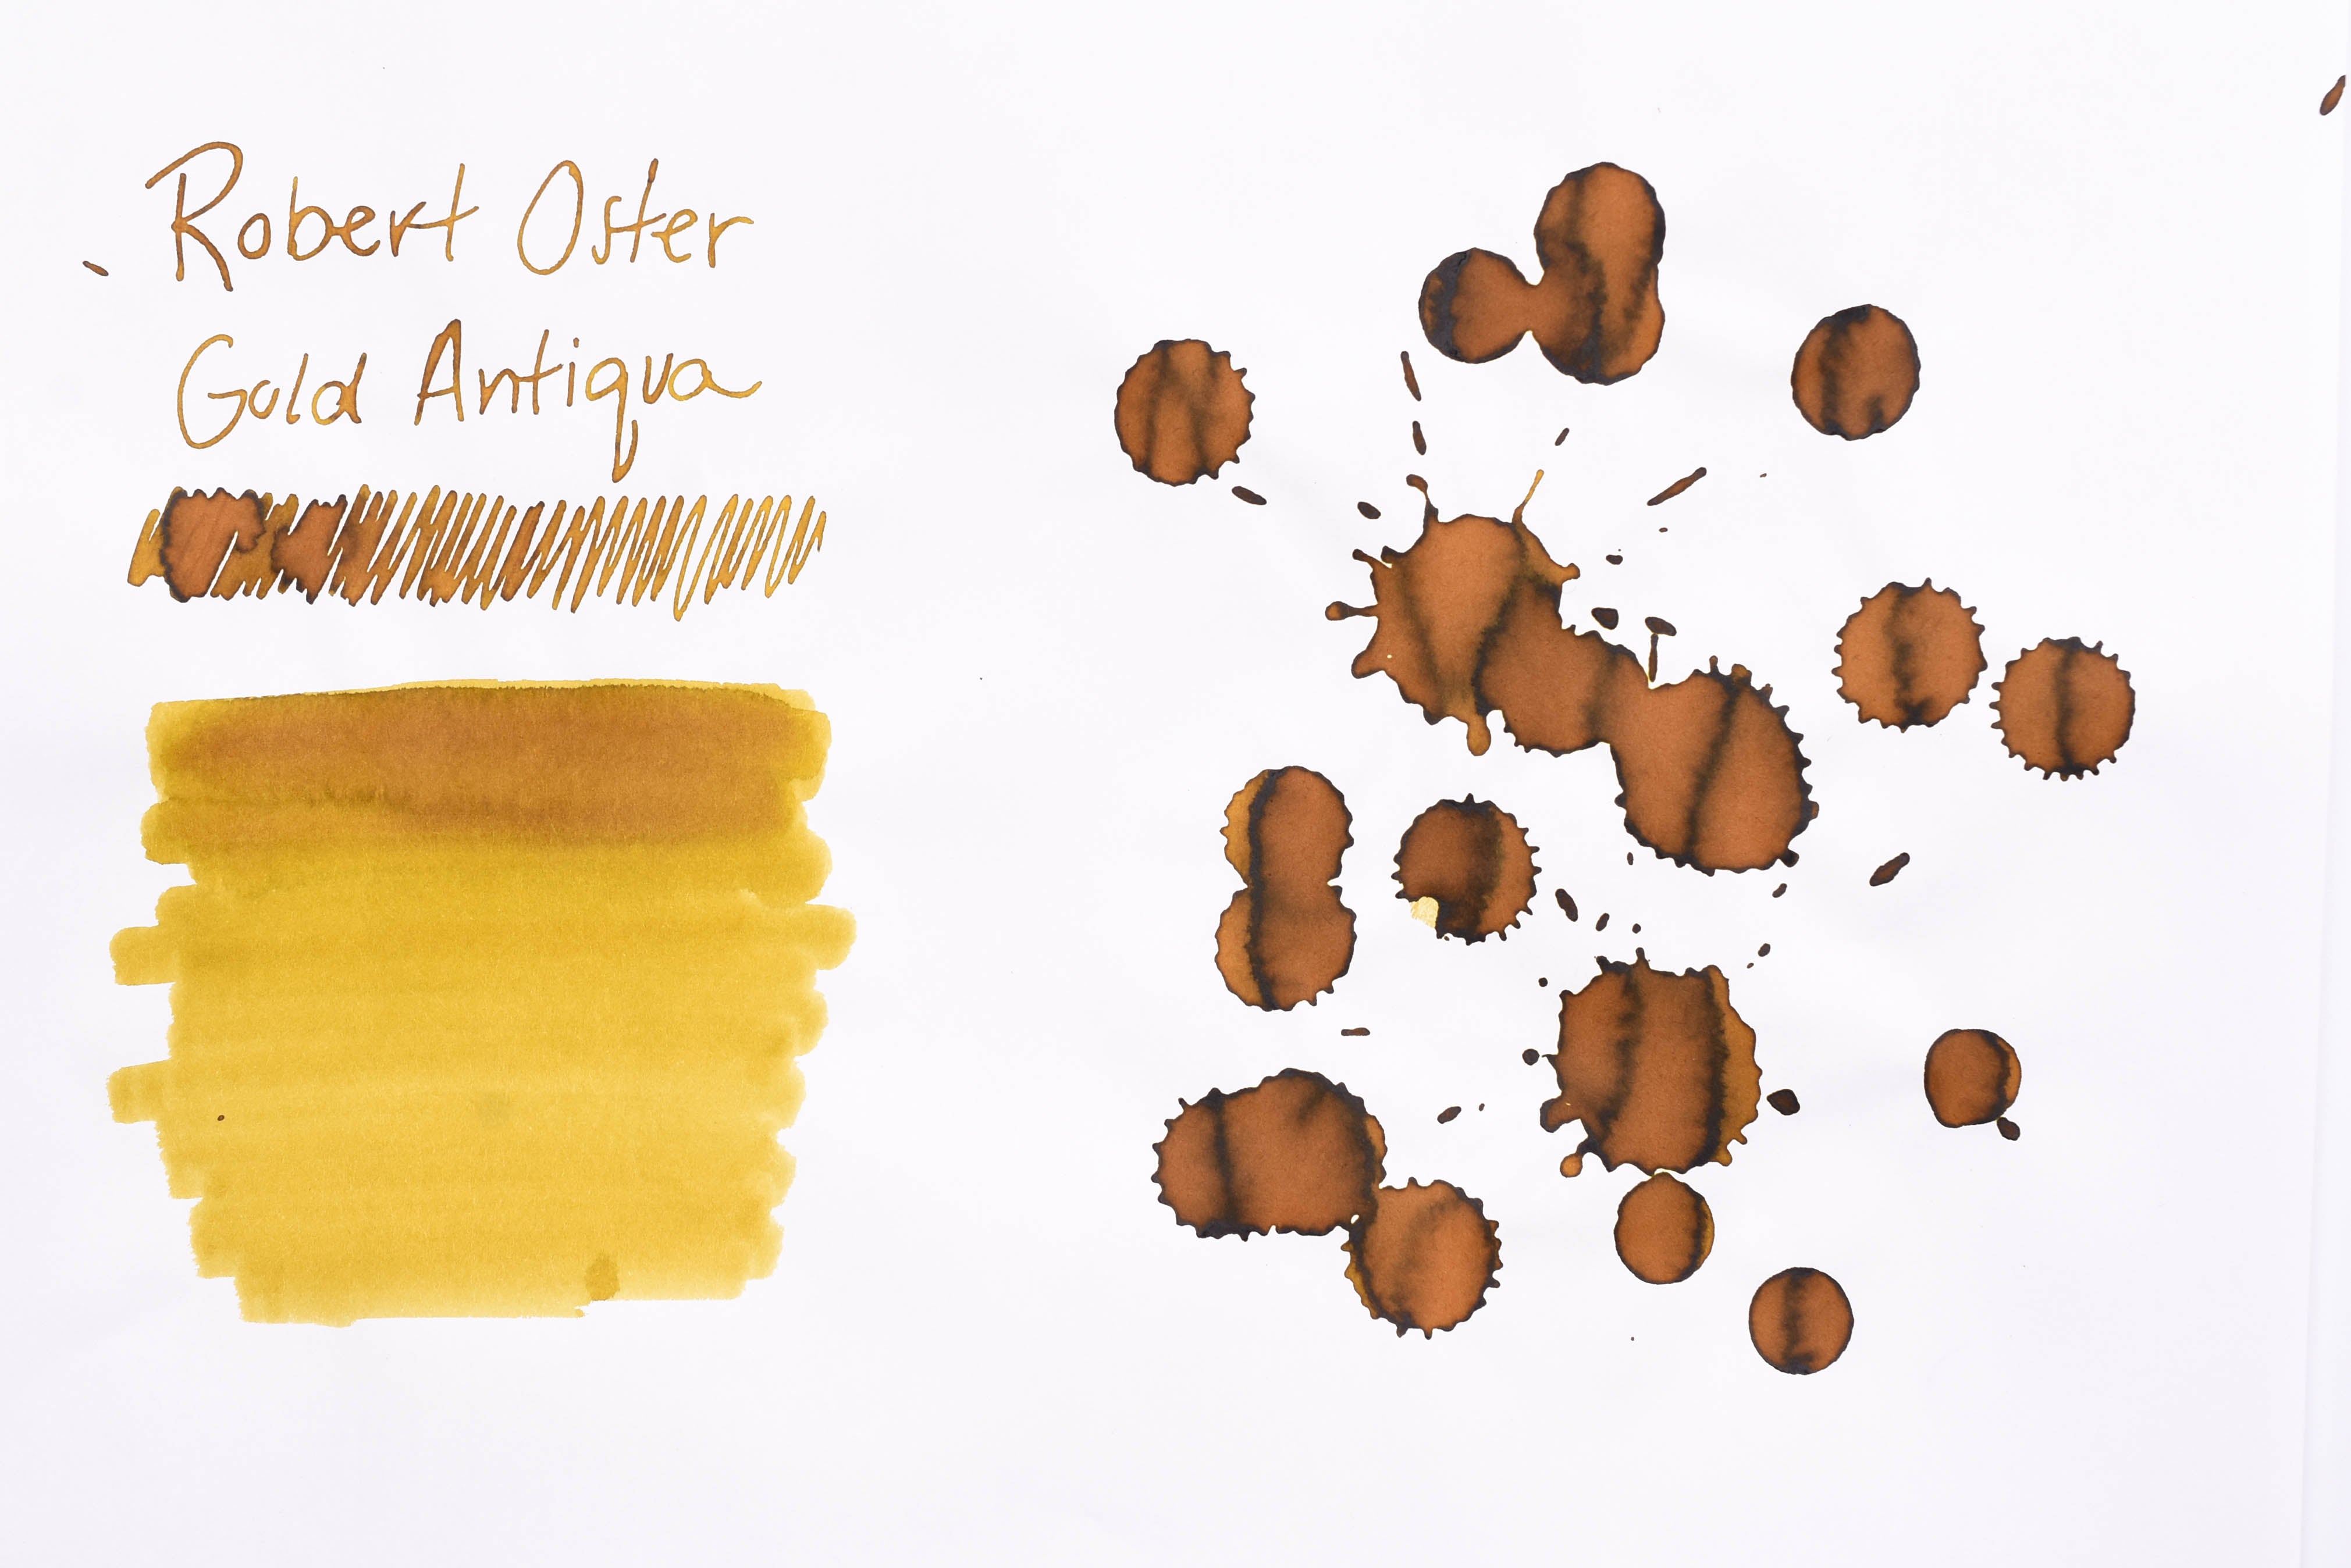 Robert Oster
Gold Antiqua